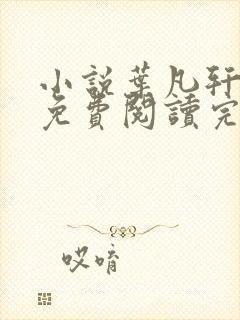 小說葉凡軒
免費閱讀完
哎唷